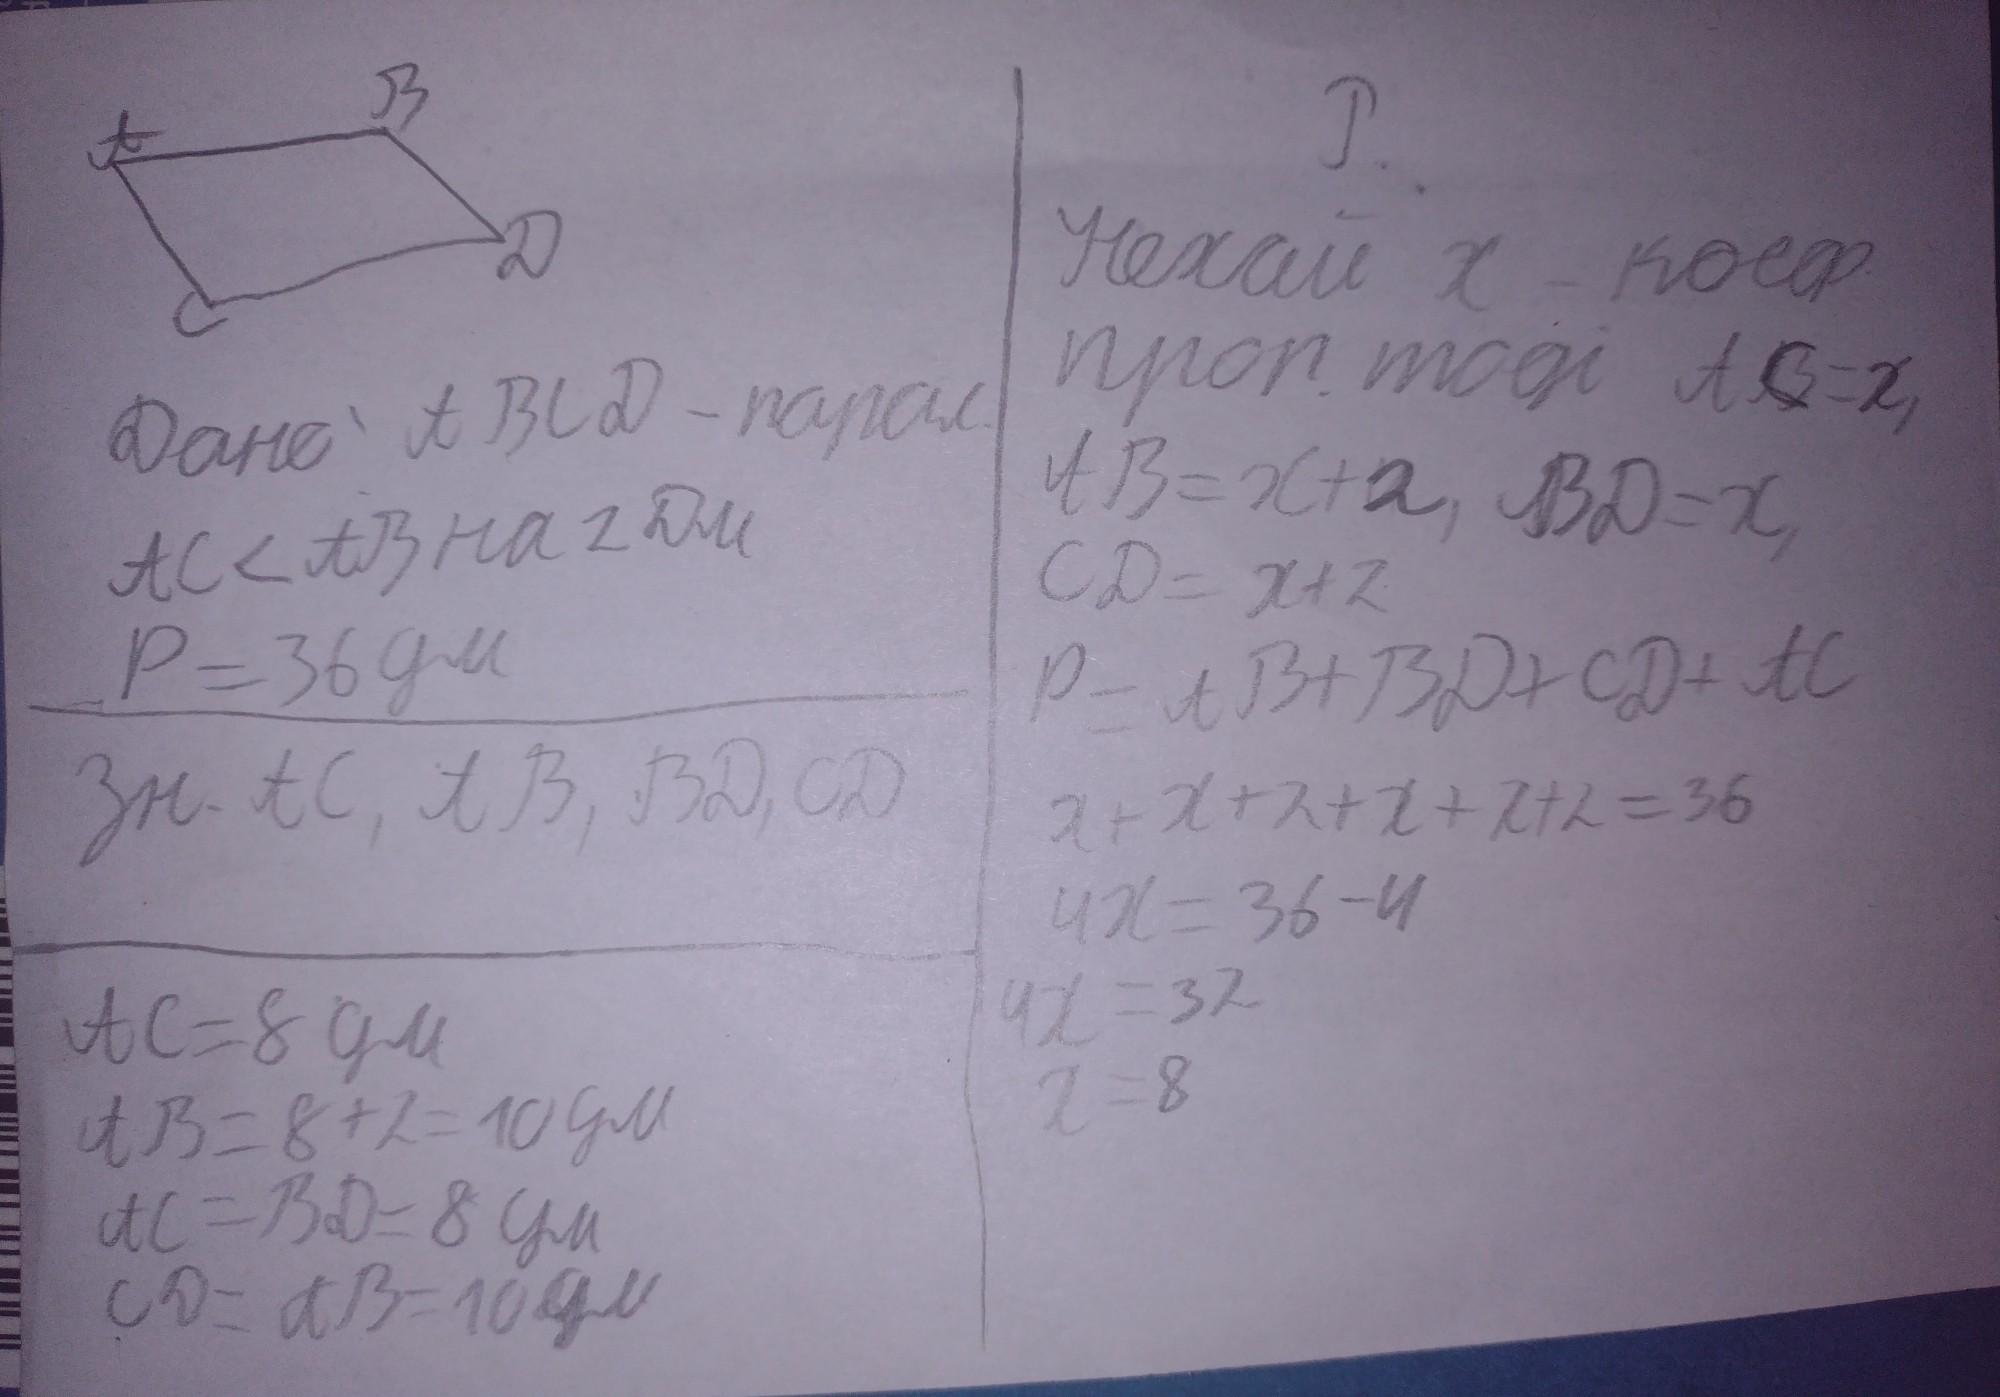 A
B
C
D
Дано: ABCD – парал.
AC < AB на 2 Дм
P = 36 дм
Зн. AC, AB, BD, CD
AC = 8 дм
AB = 8 + 2 = 10 дм
AC = BD = 8 дм
CD = AB = 10 дм
Р.
Нехай x – коеф.
проп. тоді AC = x,
AB = x + 2, BD = x,
CD = x + 2
P = AB + BD + CD + AC
x + x + 2 + x + x + 2 = 36
4x = 36 – 4
4x = 32
x = 8